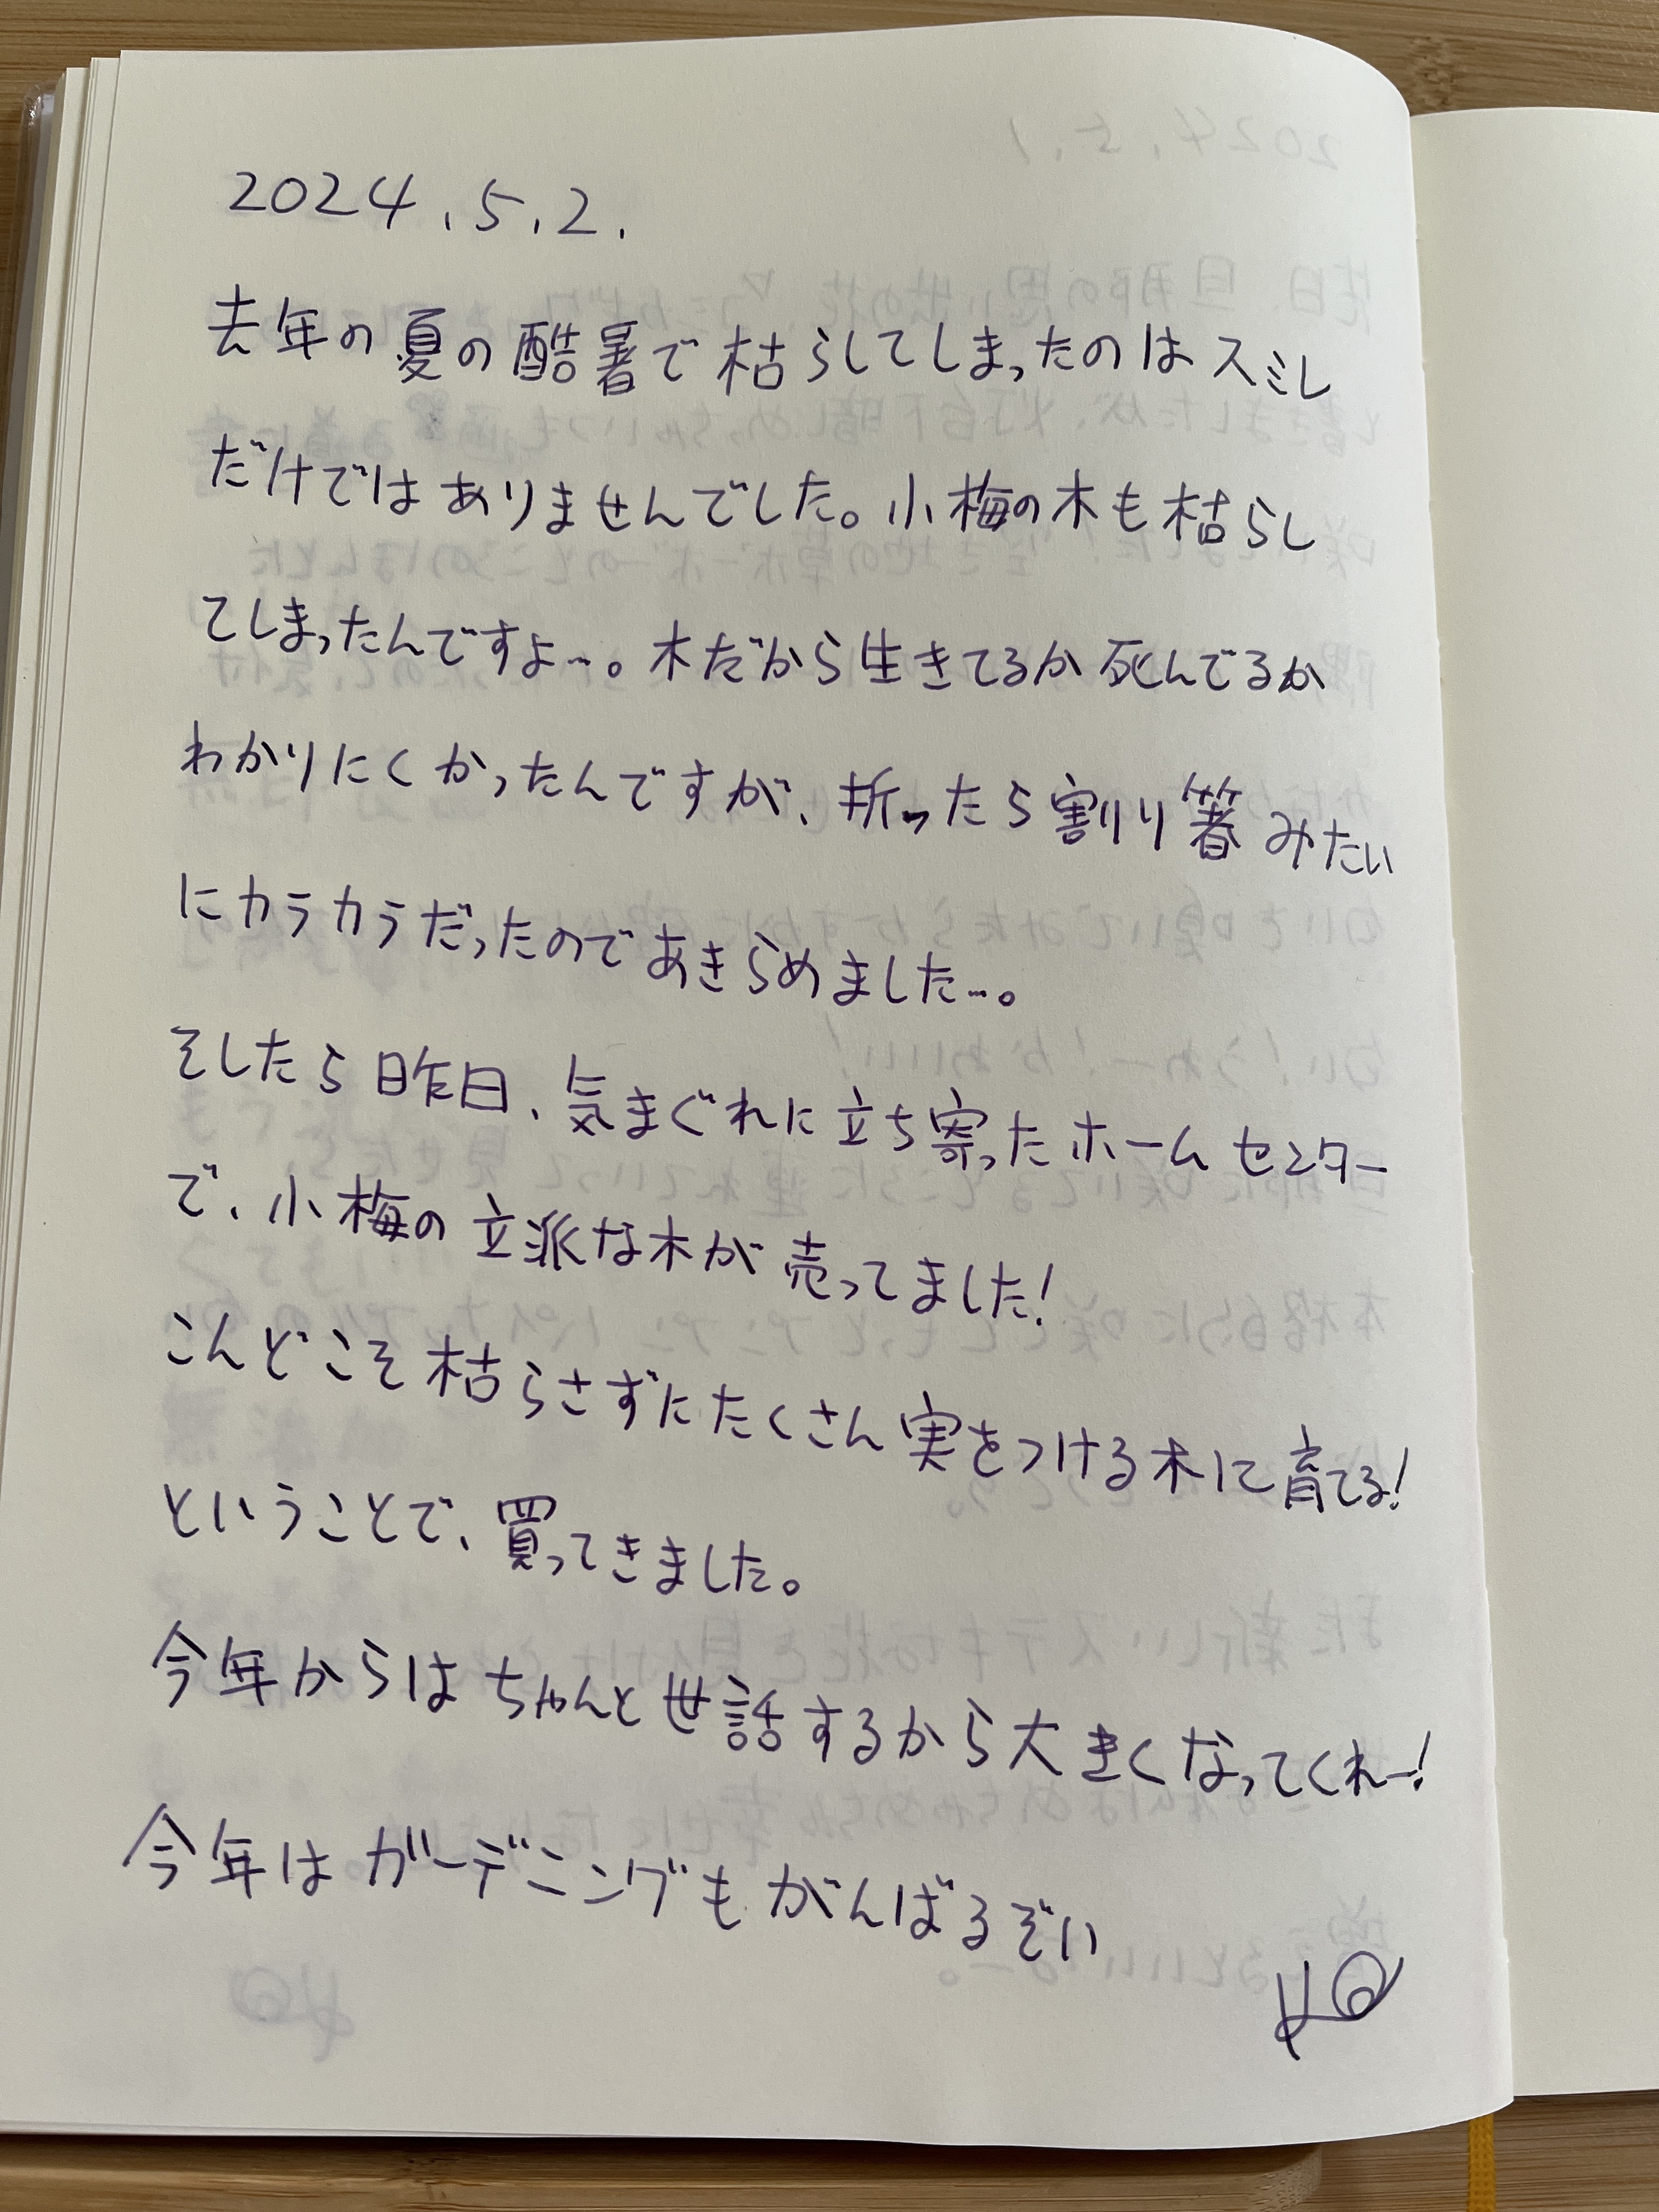 2024.5.2.
去年の夏の酷暑で枯らしてしまったのはスミレ
だけではありませんでした。小梅の木も枯らし
てしまったんですよ…。木だから生きてるか死んでるか
わかりにくかったんですが、折ったら割り箸みたい
にカラカラだったのであきらめました…。
そしたら昨日、気まぐれに立ち寄ったホームセンター
で、小梅の立派な木が売ってました!
こんどこそ枯らさずにたくさん実をつける木に育てる!
ということで、買ってきました。
今年からはちゃんと世話するから大きくなってくれー!
今年はガーデニングもがんばるぞい